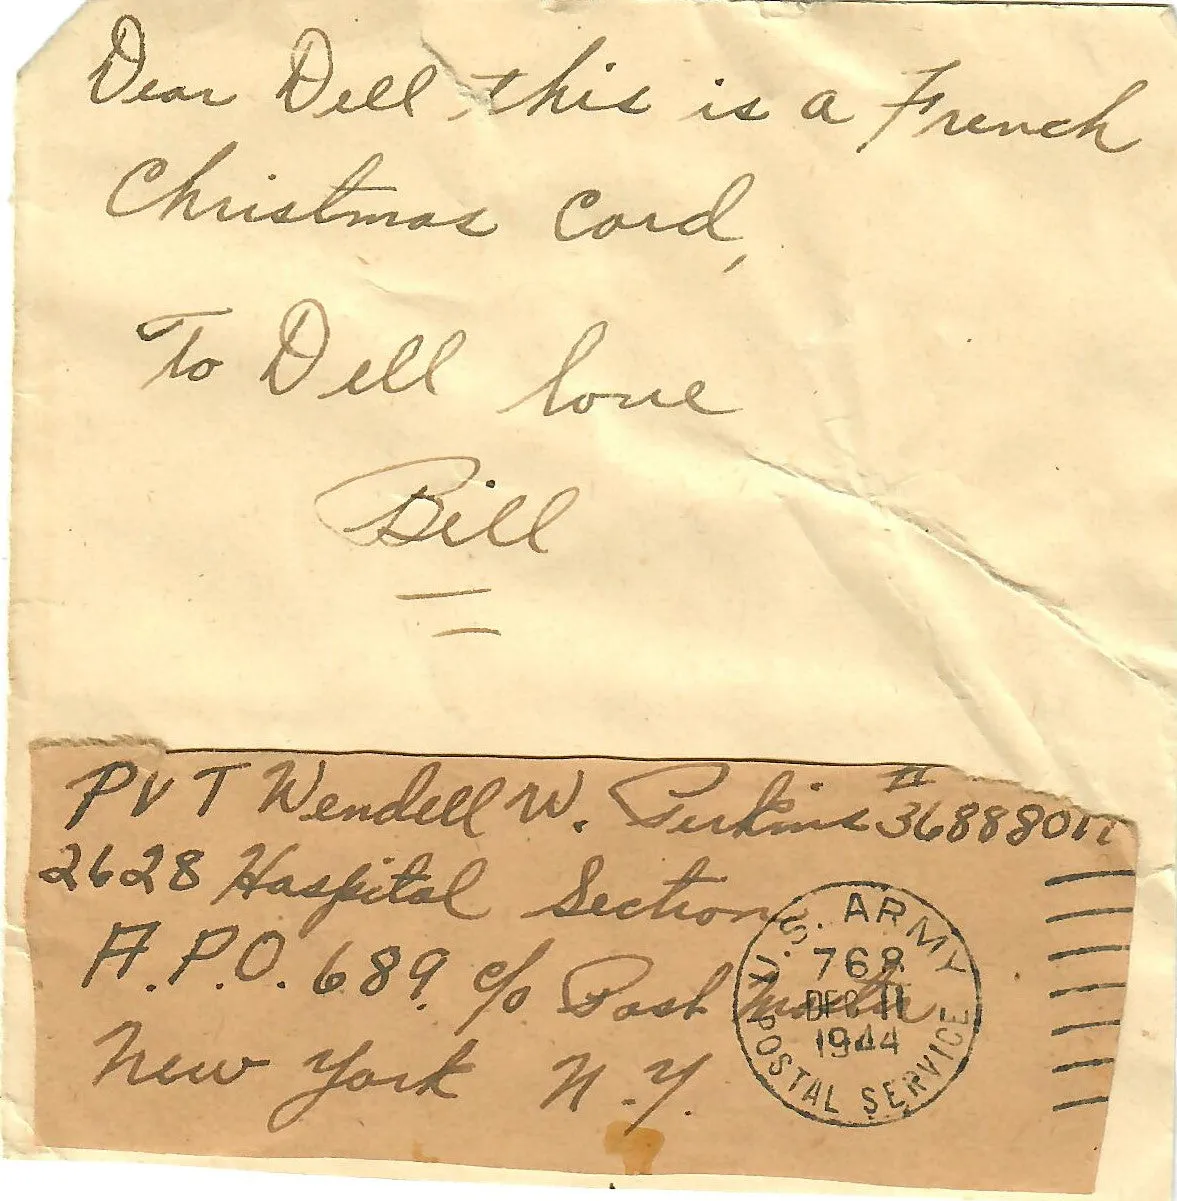 Dear Dell, this is a French
Christmas Card,
To Dell love
Bill
PVT Wendell W. Perkins #36888011
2628 Hospital Section
A.P.O. 689. c/o Post Master
New York N.Y.
U.S. ARMY
768
DEC 11
1944
POSTAL SERVICE